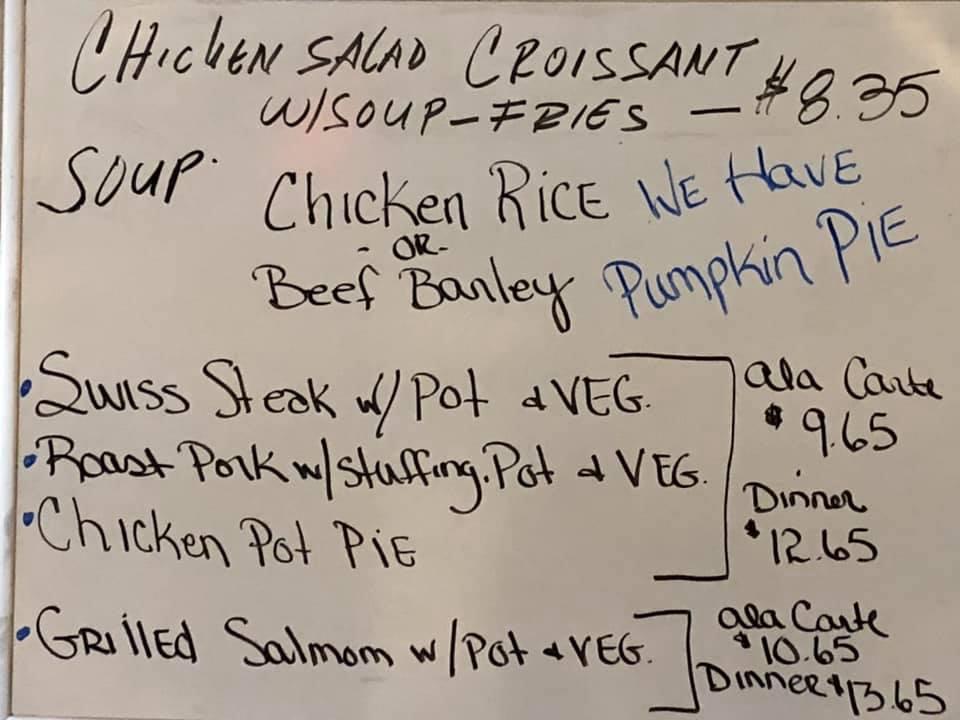 CHicKEN SALAD CROISSANT
W/SOUP-FRIES - $8.35
SOUP. Chicken RICE WE HAVE
- OR -
Beef Barley Pumpkin PIE
• Swiss Steak w/ Pot & VEG. ala Carte
$9.65
• Roast Pork w/stuffing. Pot & VEG. Dinner
• Chicken Pot PiE $12.65
• GRilled Salmom w/Pot & VEG. ala Carte
$10.65
Dinner $13.65